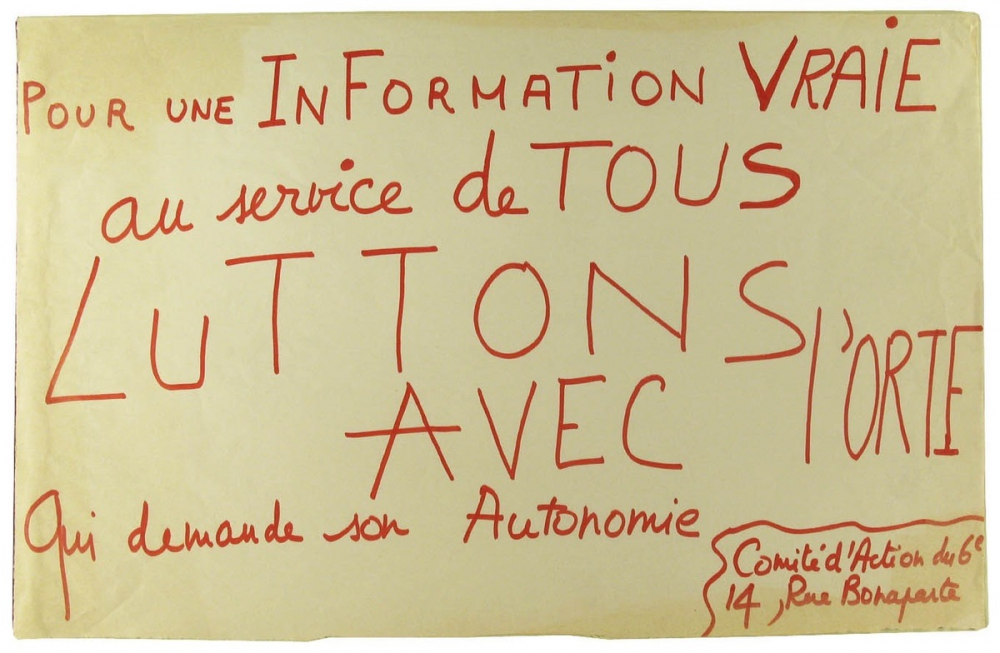 POUR UNE INFORMATION VRAIE
au service de TOUS
LUTTONS
AVEC l'ORTF
Qui demande son Autonomie
Comité d'Action du 6e
14, Rue Bonaparte